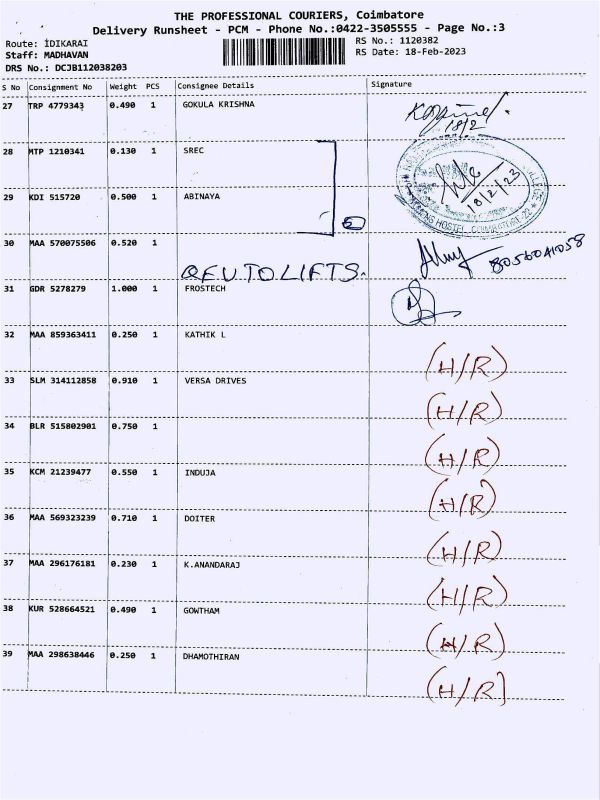 THE PROFESSIONAL COURIERS, Coimbatore
Delivery Runsheet - PCM - Phone No.:0422-3505555 - Page No.:3
Route: IDIKARAI
RS No.: 1120382
Staff: MADHAVAN
RS Date: 18-Feb-2023
DRS No.: DCJB112038203
S No Consignment No Weight PCS Consignee Details Signature
27 TRP 4779343 0.490 1 GOKULA KRISHNA
18/2
28 MTP 1210341 0.130 1 SREC
29 KDI 515720 0.500 1 ABINAYA
18/2/23
HOSTEL
30 MAA 570075506 0.520 1
8056041058
LIFTS.
31 GDR 5278279 1.000 1 FROSTECH
32 MAA 859363411 0.250 1 KATHIK L
(H/R)
33 SLM 314112858 0.910 1 VERSA DRIVES
(H/R)
34 BLR 515802901 0.750 1
(H/R)
35 KCM 21239477 0.550 1 INDUJA
(H/R)
36 MAA 569323239 0.710 1 DOITER
(H/R)
37 MAA 296176181 0.230 1 K.ANANDARAJ
(H/R)
38 KUR 528664521 0.490 1 GOWTHAM
(H/R)
39 MAA 298638446 0.250 1 DHAMOTHIRAN
(H/R)